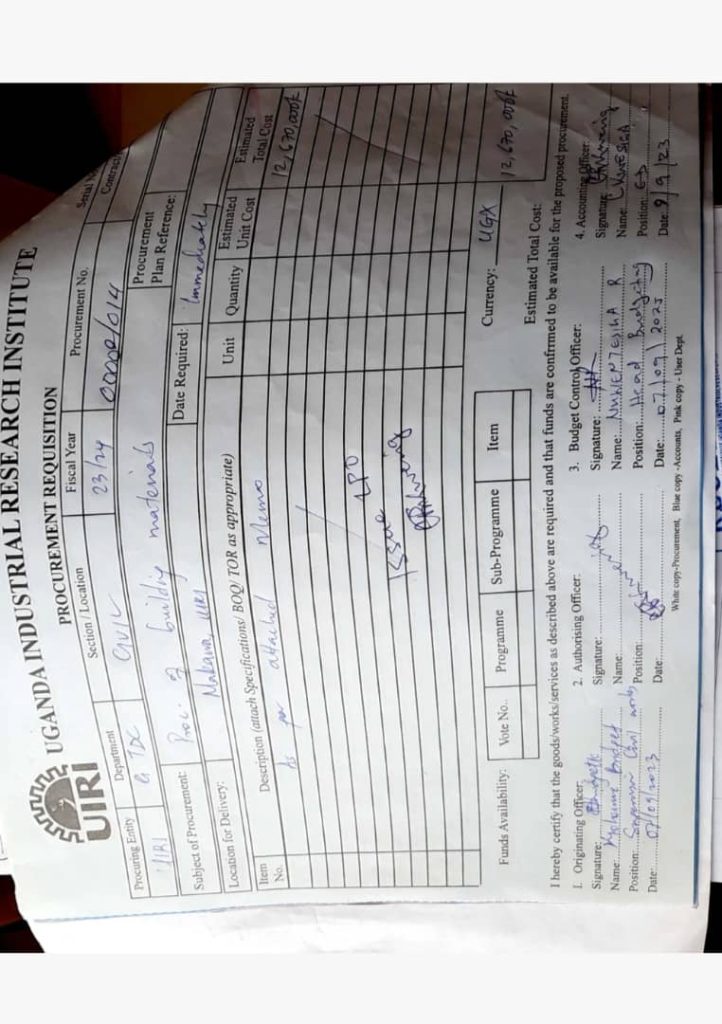 UIRI
UGANDA INDUSTRIAL RESEARCH INSTITUTE
PROCUREMENT REQUISITION
Serial No
Procuring Entity Department Section / Location Fiscal Year Procurement No. Contract
UIRI TDC CIVIL 23/24 00000/014
Subject of Procurement: Proc. of building materials Procurement Plan Reference:
Location for Delivery: Nakawa, UIRI Date Required: Immediately
Item No. Description (attach Specifications/ BOQ/ TOR as appropriate) Unit Quantity Estimated Unit Cost Estimated Total Cost
As per attached Memo 12,670,000/=
Issue LPO
Currency: UGX 12,670,000/=
Funds Availability: Vote No.. Programme Sub-Programme Item
Estimated Total Cost:
I hereby certify that the goods/works/services as described above are required and that funds are confrrmed to be available for the proposed procurement.
1. Originating Officer: 2. Authorising Officer: 3. Budget Control Officer: 4. Accounting Officer:
Signature: Signature: Signature: Signature:
Name: Name: Name: R Name:
Position: Civil works Position: Position: Head Budgeting Position: ED
Date: 07/09/2023 Date: Date: 07/09/2023 Date: 9/9/23
White copy-Procurement, Blue copy -Accounts, Pink copy - User Dept